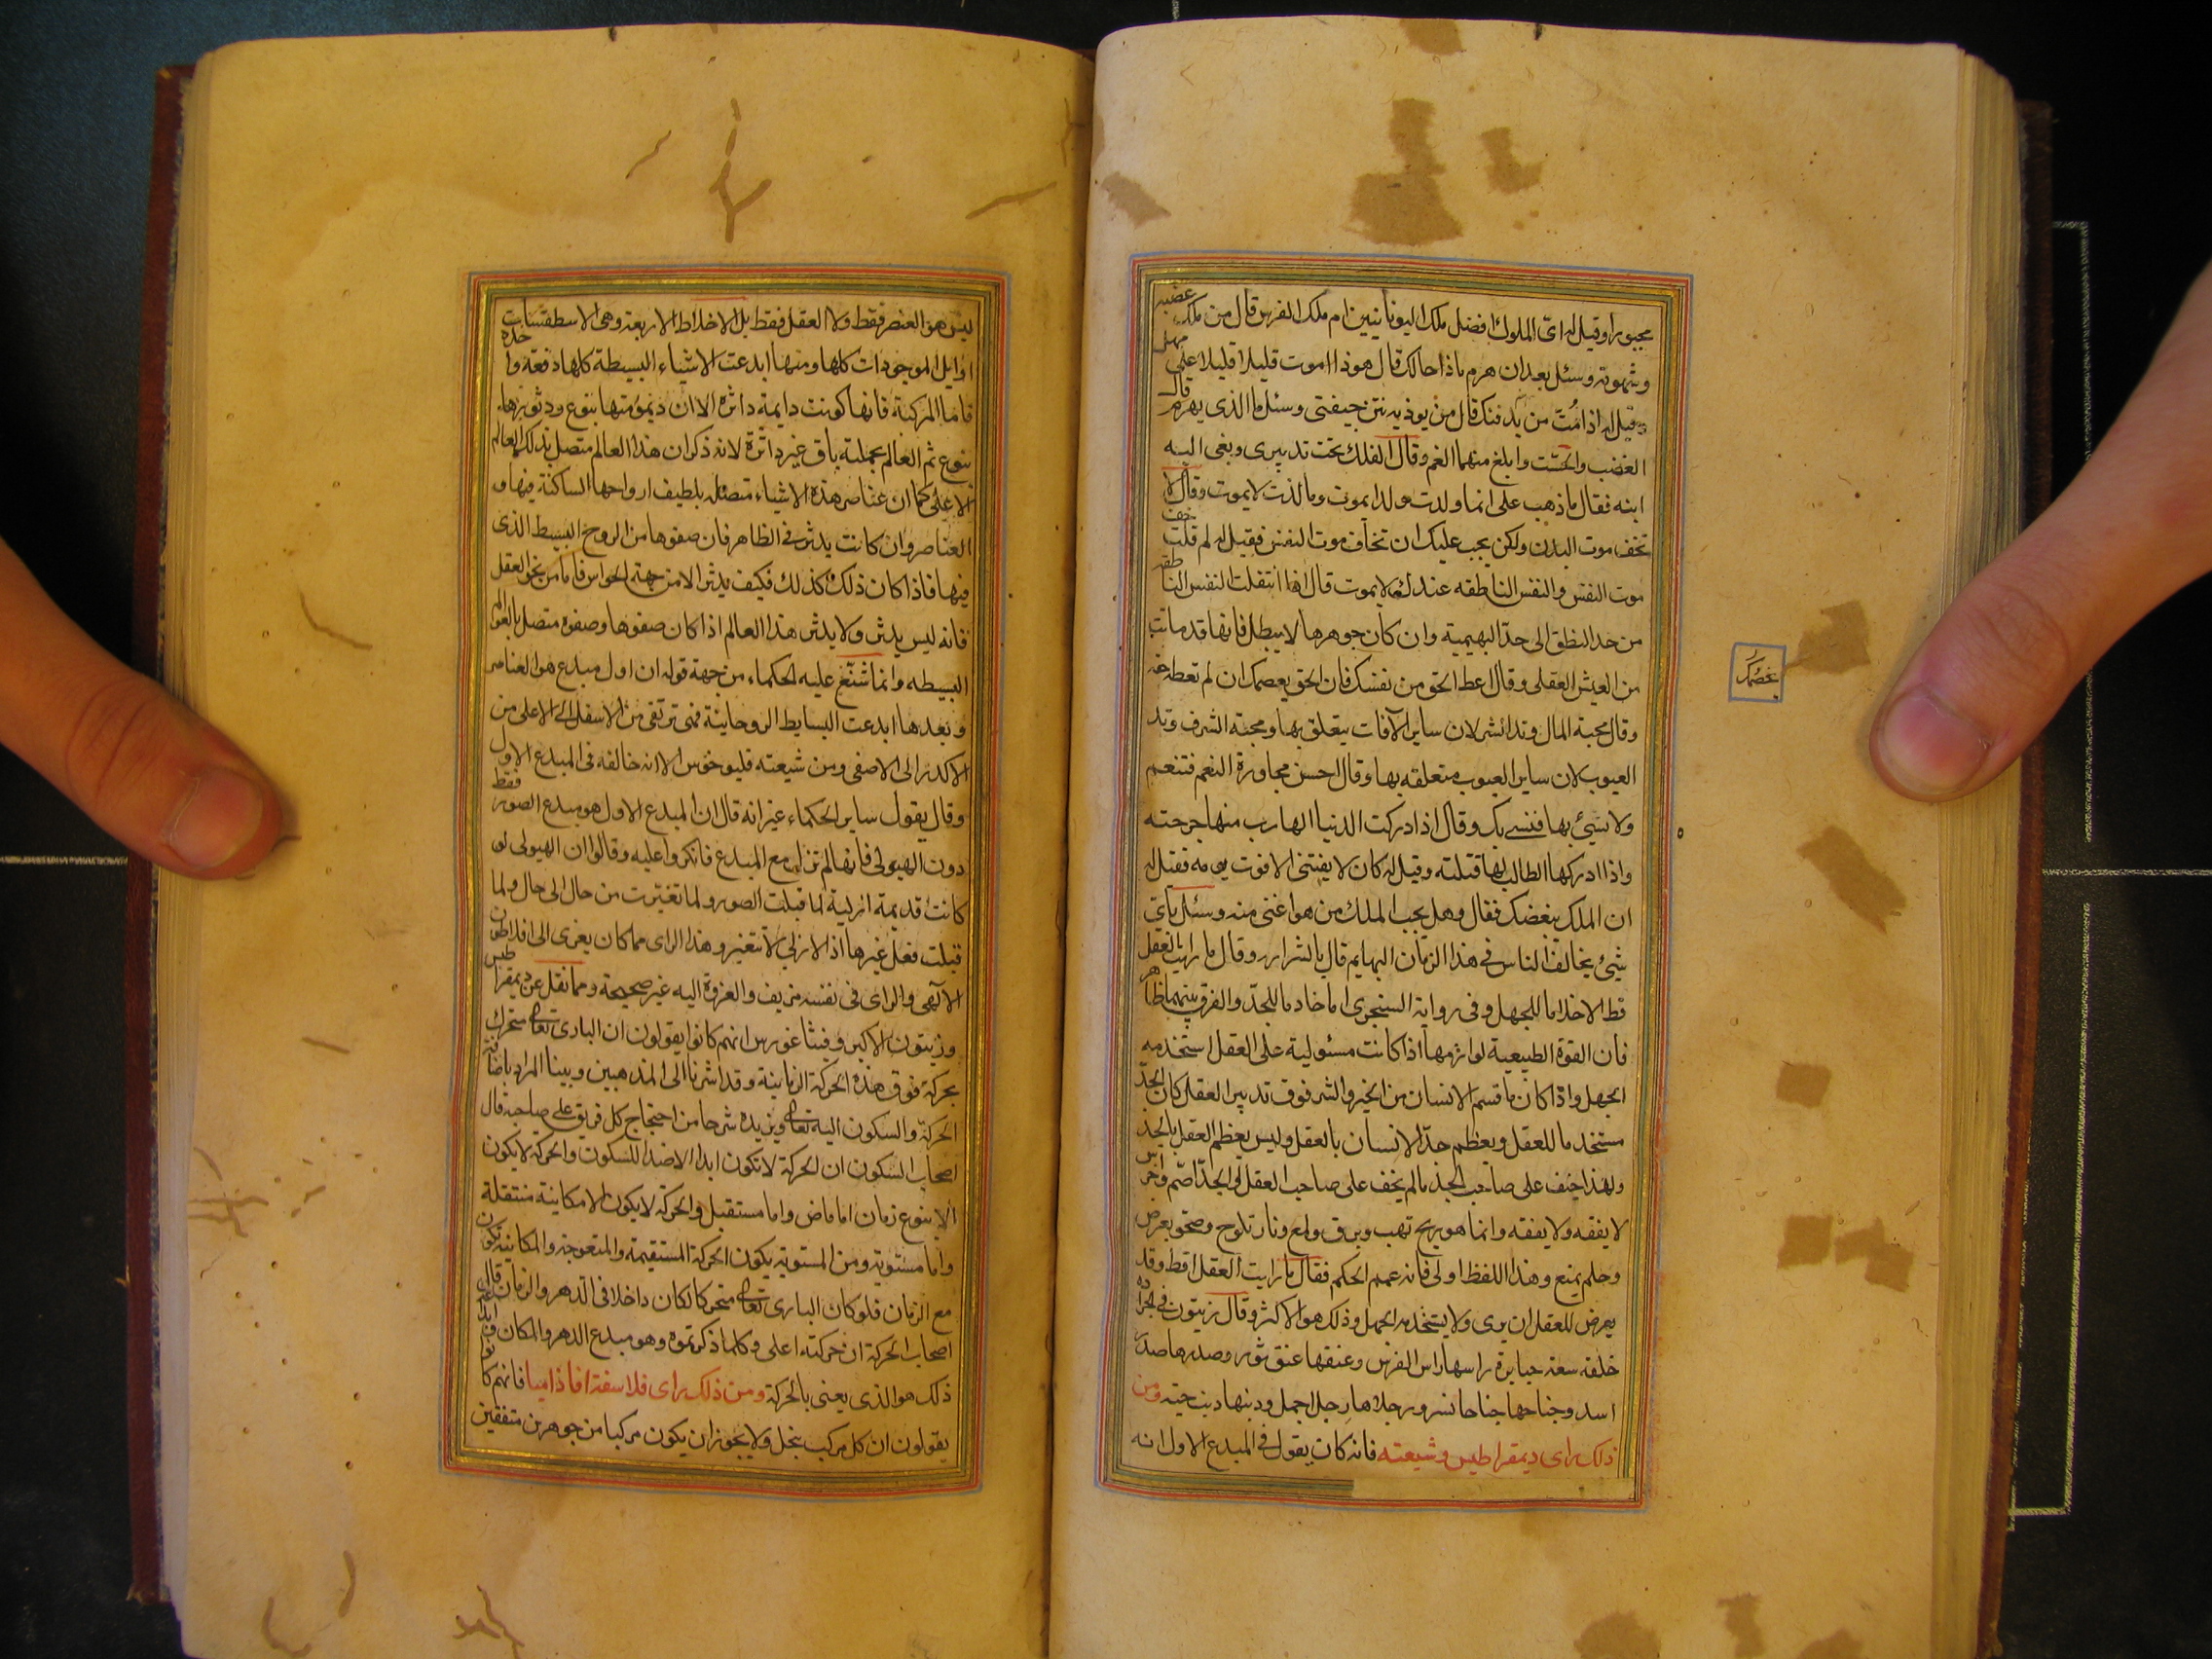 مجبورا وقيل له اىّ الملوك افضل ملك اليونانيين ام ملك الفرس قال من ملك غضبه
وشهوته وسئل بعد ان هرم ماذا حالك قال هوذا اموت قليلا قليلا على مهل
وقيل له اذا مُتّ من يدفنك قال من يوذيه نتن جيفتى وسئل ما الذى يهرم قال
الغضب والحسد وابلغ منهما الغم وقال الفلك تحت تدبيرى ونعى اليه
ابنه فقال ما ذهب على انما ولدت ولدا يموت وما لدت لا يموت وقال لا
تخف موت البدن ولكن يجب عليك ان تخاف موت النفس فقيل له لم قلت خف
موت النفس والنفس الناطقه عندك لا يموت قال اذا انتقلت النفس الناطقه
من حد النطق الى حدّ البهيمية وان كان جوهرها لا يبطل فانها قد ماتت
من العيش العقلى وقال اعط الحق من نفسك فان الحق يعصمك ان لم تعطه حقه
وقال محبة المال وتد الشر لان ساير الآفات يتعلق بها ومحبته الشرف وتد
العيوب لان ساير العيوب متعلقه بها وقال احسن مجاورة النعم فتنعم
ولا تسئ بها فتسئ بك وقال اذا ادركت الدنيا الهارب منها جرحته
واذا ادركها الطالب لها قتلته وقيل له كان لا يقتنى الا قوت يومه فقيل له
ان الملك يبغضك فقال وهل يحب الملك من هو اغنى منه وسئل باىّ
شئ يخالف الناس فى هذا الزمان البهايم قال بالشراره وقال ما رايت العقل
قط الا خادما للجهل وفى رواية السنجرى اما خادما للجدّ والفرق بينهما ظاهر
فان القوة الطبيعية لوازمها اذا كانت مستولية على العقل استخدمه
الجهل واذا كان ما قسم الانسان من الخير والشر فوق تدبير العقل كان الجدّ
مستخدما للعقل ويعظم جدّ الانسان بالعقل وليس يعظم العقل بالجد
ولهذا خيف على صاحب الجد ما لم يخف على صاحب العقل والجدّ اصّم واخرس
لا يفقه ولا ينفقه وانما هو ريح تهب وبرق ولمع ونار تلوح وصحو يعرض
وحلم يمنع وهذا اللفظ اولى فانه عمم الحكم فقال ما رايت العقل قط وقد
يعرض للعقل ان يرى ولا يستخدمه الجهل وذلك هو الاكثر وقال زيتون فى الجراده
خلقه سعة جبابرة راسها راس الفرس وعنقها عنق ثور وصدرها صدر
اسد وجناحها جناحا نسر ورجلاها رجل الجمل وذنبها ذنب حيته ومن
ذلك راى ديمقراطيس وشيعته فانه كان يقول فى المبدع الاول انه
يعصُمكَ
ليس هو العنصر فقط ولا العقل فقط بل الاخلاط الاربعة وهى الاسطقسات
اوايل الموجودات كلها ومنها ابدعت الاشياء البسيطة كلها دفعة واحدة
فاما المركبة فانها كونت دايمة داثرة الا ان ديمومتها بنوع ودثورها
بنوع ثم العالم بجملته باق غير داثرة لانه ذكر ان هذا العالم متصل بذلك العالم
الاعلى كما ان عناصر هذه الاشياء متصله بلطيف ارواحها الساكنة فيها و
العناصر وان كانت يدثر فى الظاهر فان صفوها من الروح البسيط الذى
فيها فاذا كان ذلك كذلك فكيف يدثر الا من جهة الحواس فاما من نحو العقل
فانه ليس يدثر ولا يدثر هذا العالم اذا كان صفوها وصفوه متصل بالعوالم
البسيطه وانما شنّع عليه الحكماء من جهة قوله ان اول مبدع هو العناصر
وبعدها ابدعت البسايط الروحانية فهى ترتقى من الاسفل الى الاعلى من
الاكدر الى الاصفى ومن شيعته فليوخوس الا انه خالفه فى المبدع الاول
وقال يقول ساير الحكماء غير انه قال ان المبدع الاول هو مبدع الصور فقط
دون الهيولى فانها لم تزل مع المبدع فانكروا عليه وقالوا ان الهيولى لو
كانت قديمة ازلية لما قبلت الصور ولما تغيرت من حال الى حال ولما
قبلت فعل غيرها اذ الازلى لا يتغير وهذا الراى مما كان يعزى الى افلاطون
الآلهى والراى فى نفسه مزيف والعزوة اليه غير صحيحة ومما نقل عن ديمقراطيس
وزيتون الاكبر وفيثاغورس انهم كانوا يقولون ان البارى تعالى متحرك
بحركة فوق هذه الحركة الزمانية وقد اشرنا الى المذهبين وبينا المراد باضافة
الحركة والسكون اليه تعالى ونزيده شرحا من احتجاج كل فريق على صاحبه قال
اصحاب السكون ان الحركة لا تكون ابدا الا ضد السكون والحركة لا يكون
الا بنوع زمان اما ماض واما مستقبل والحركة لا يكون الا مكانية منتقلة
واما مستوية ومن المستوية يكون الحركة المستقيمة والمتعوجة والمكانية تكون
مع الزمان فلو كان البارى تعالى متحركا لكان داخلا فى الدهر والزمان قال
اصحاب الحركة ان حركته اعلى وكلما ذكرتموه وهو مبدع الدهر والمكان وابداعه
ذلك هو الذى يعنى بالحركة ومن ذلك راى فلاسفة اقاذاميا فانهم كانوا
يقولون ان كل مركب ينحل ولا يجوز ان يكون مركبا من جوهرين متفقين